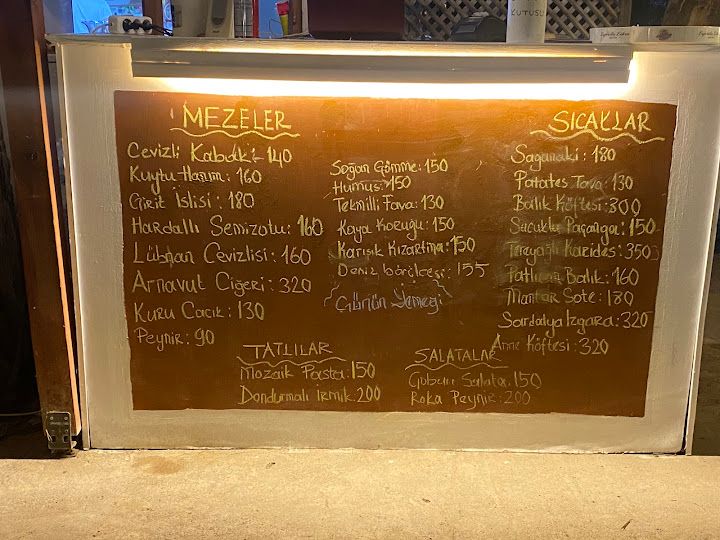 KUTUSU
MEZELER
Cevizli Kabak: 140
Kuytu Hanım: 160
Girit İslisi: 180
Hardallı Semizotu: 160
Lübnan Cevizlisi: 160
Arnavut Ciğeri: 320
Kuru Cacık: 130
Peynir: 90
Soğan Gömme: 150
Humus: 150
Tekmilli Fava: 130
Kaya Koruğu: 150
Karışık Kızartma: 150
Deniz börülcesi: 155
Günün Yemeği
SICAKLAR
Saganaki: 180
Patates Tava: 130
Balık Köftesi: 300
Sucuklu Paçanga: 150
Tereyağlı Karides: 350
Patlıcan Balık: 160
Mantar Sote: 180
Sardalya Izgara: 320
Anne Köftesi: 320
TATLILAR
Mozaik Pasta: 150
Dondurmalı Irmik: 200
SALATALAR
Salata: 150
Roka Peynir: 200